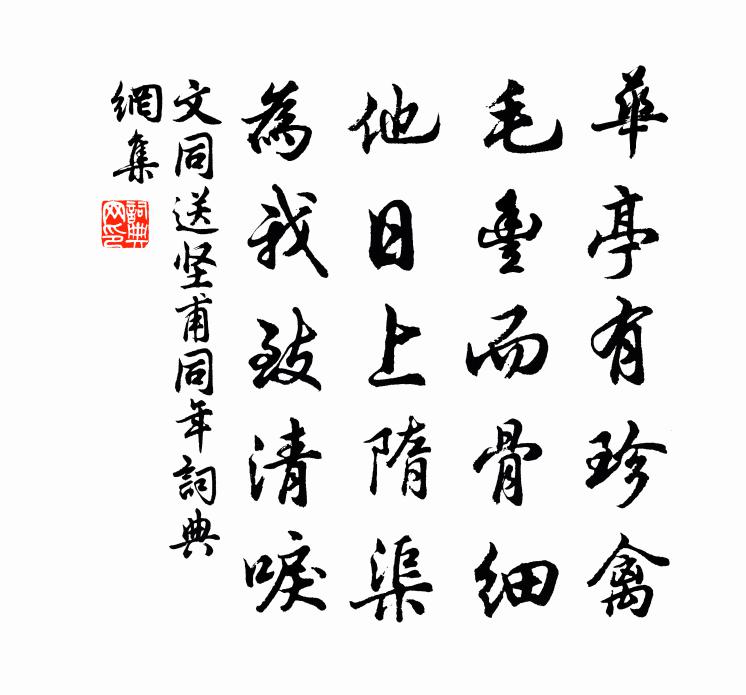 華亭有珍禽
毛豊而骨細
他日上隋渠
為我致清唳
文同送坚甫同年詞典
網集
詞典
网印